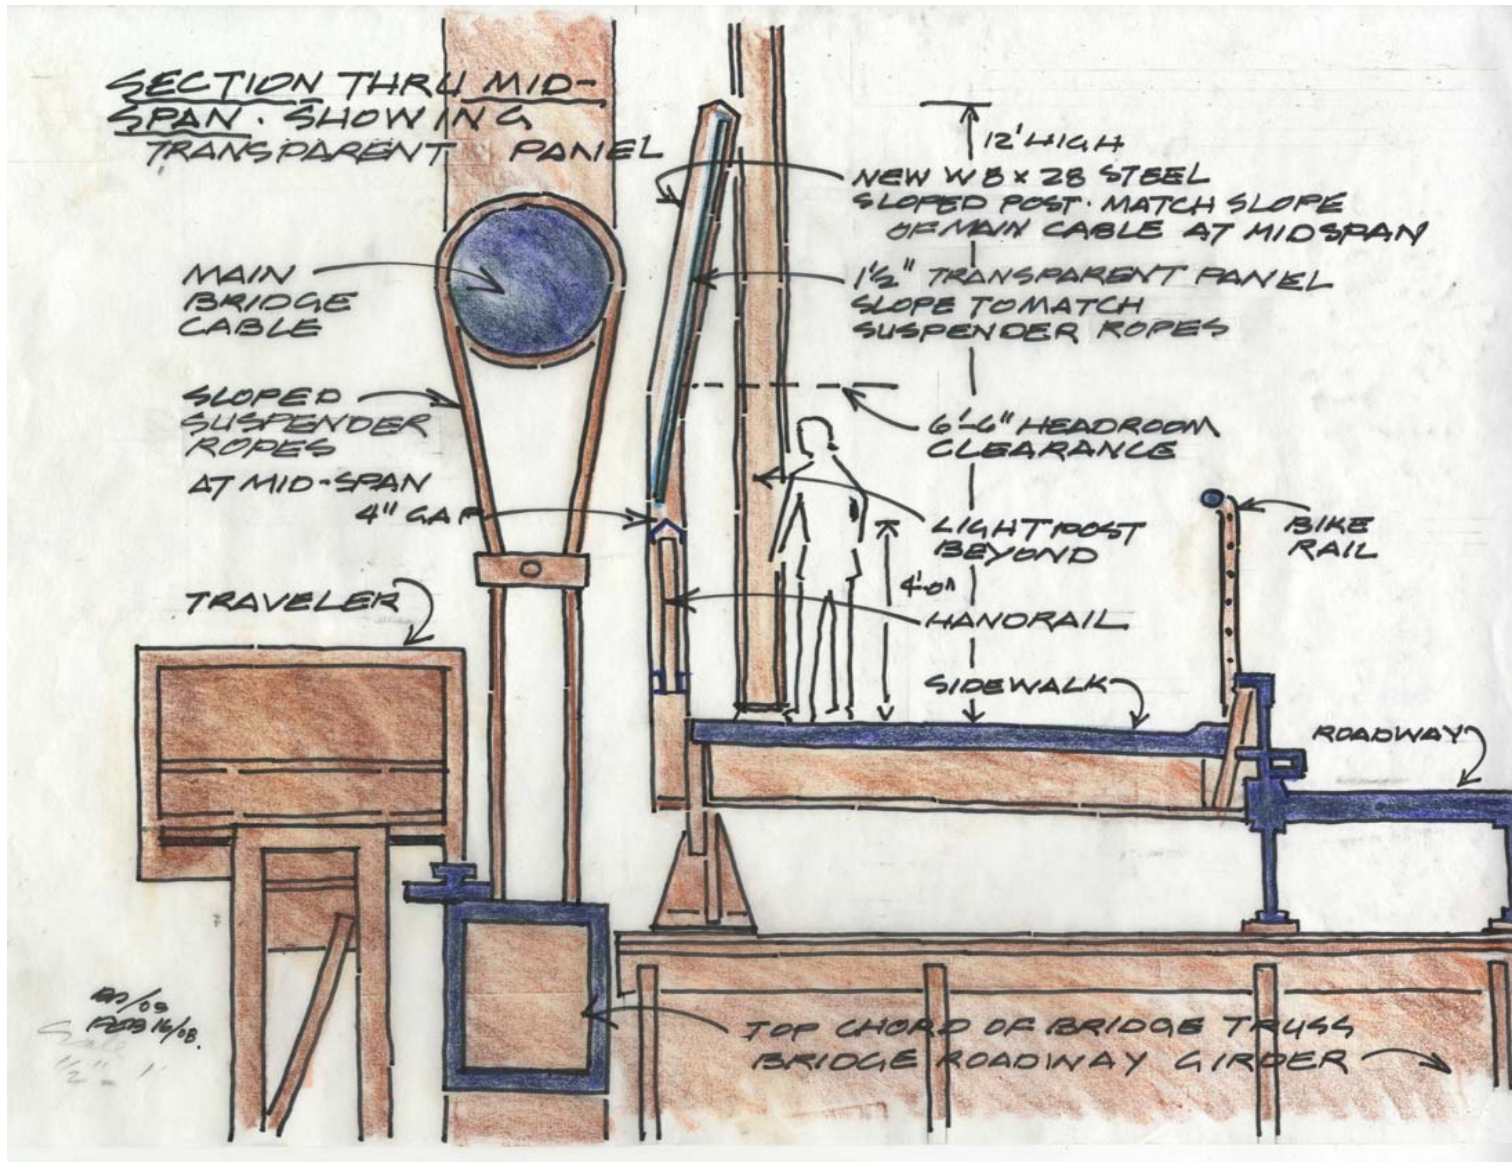 SECTION THRU MID-
SPAN. SHOWING
TRANSPARENT PANEL
12' HIGH
NEW W 8 x 28 STEEL
SLOPED POST. MATCH SLOPE
OF MAIN CABLE AT MIDSPAN
MAIN
BRIDGE
CABLE
1½" TRANSPARENT PANEL
SLOPE TO MATCH
SUSPENDER ROPES
SLOPED
SUSPENDER
ROPES
AT MID-SPAN
6'-6" HEADROOM
CLEARANCE
4" GAP
LIGHT POST
BEYOND
BIKE
RAIL
4'-0"
TRAVELER
HANDRAIL
SIDEWALK
ROADWAY
TOP CHORD OF BRIDGE TRUSS
BRIDGE ROADWAY GIRDER
FEB 16/08.
Scale